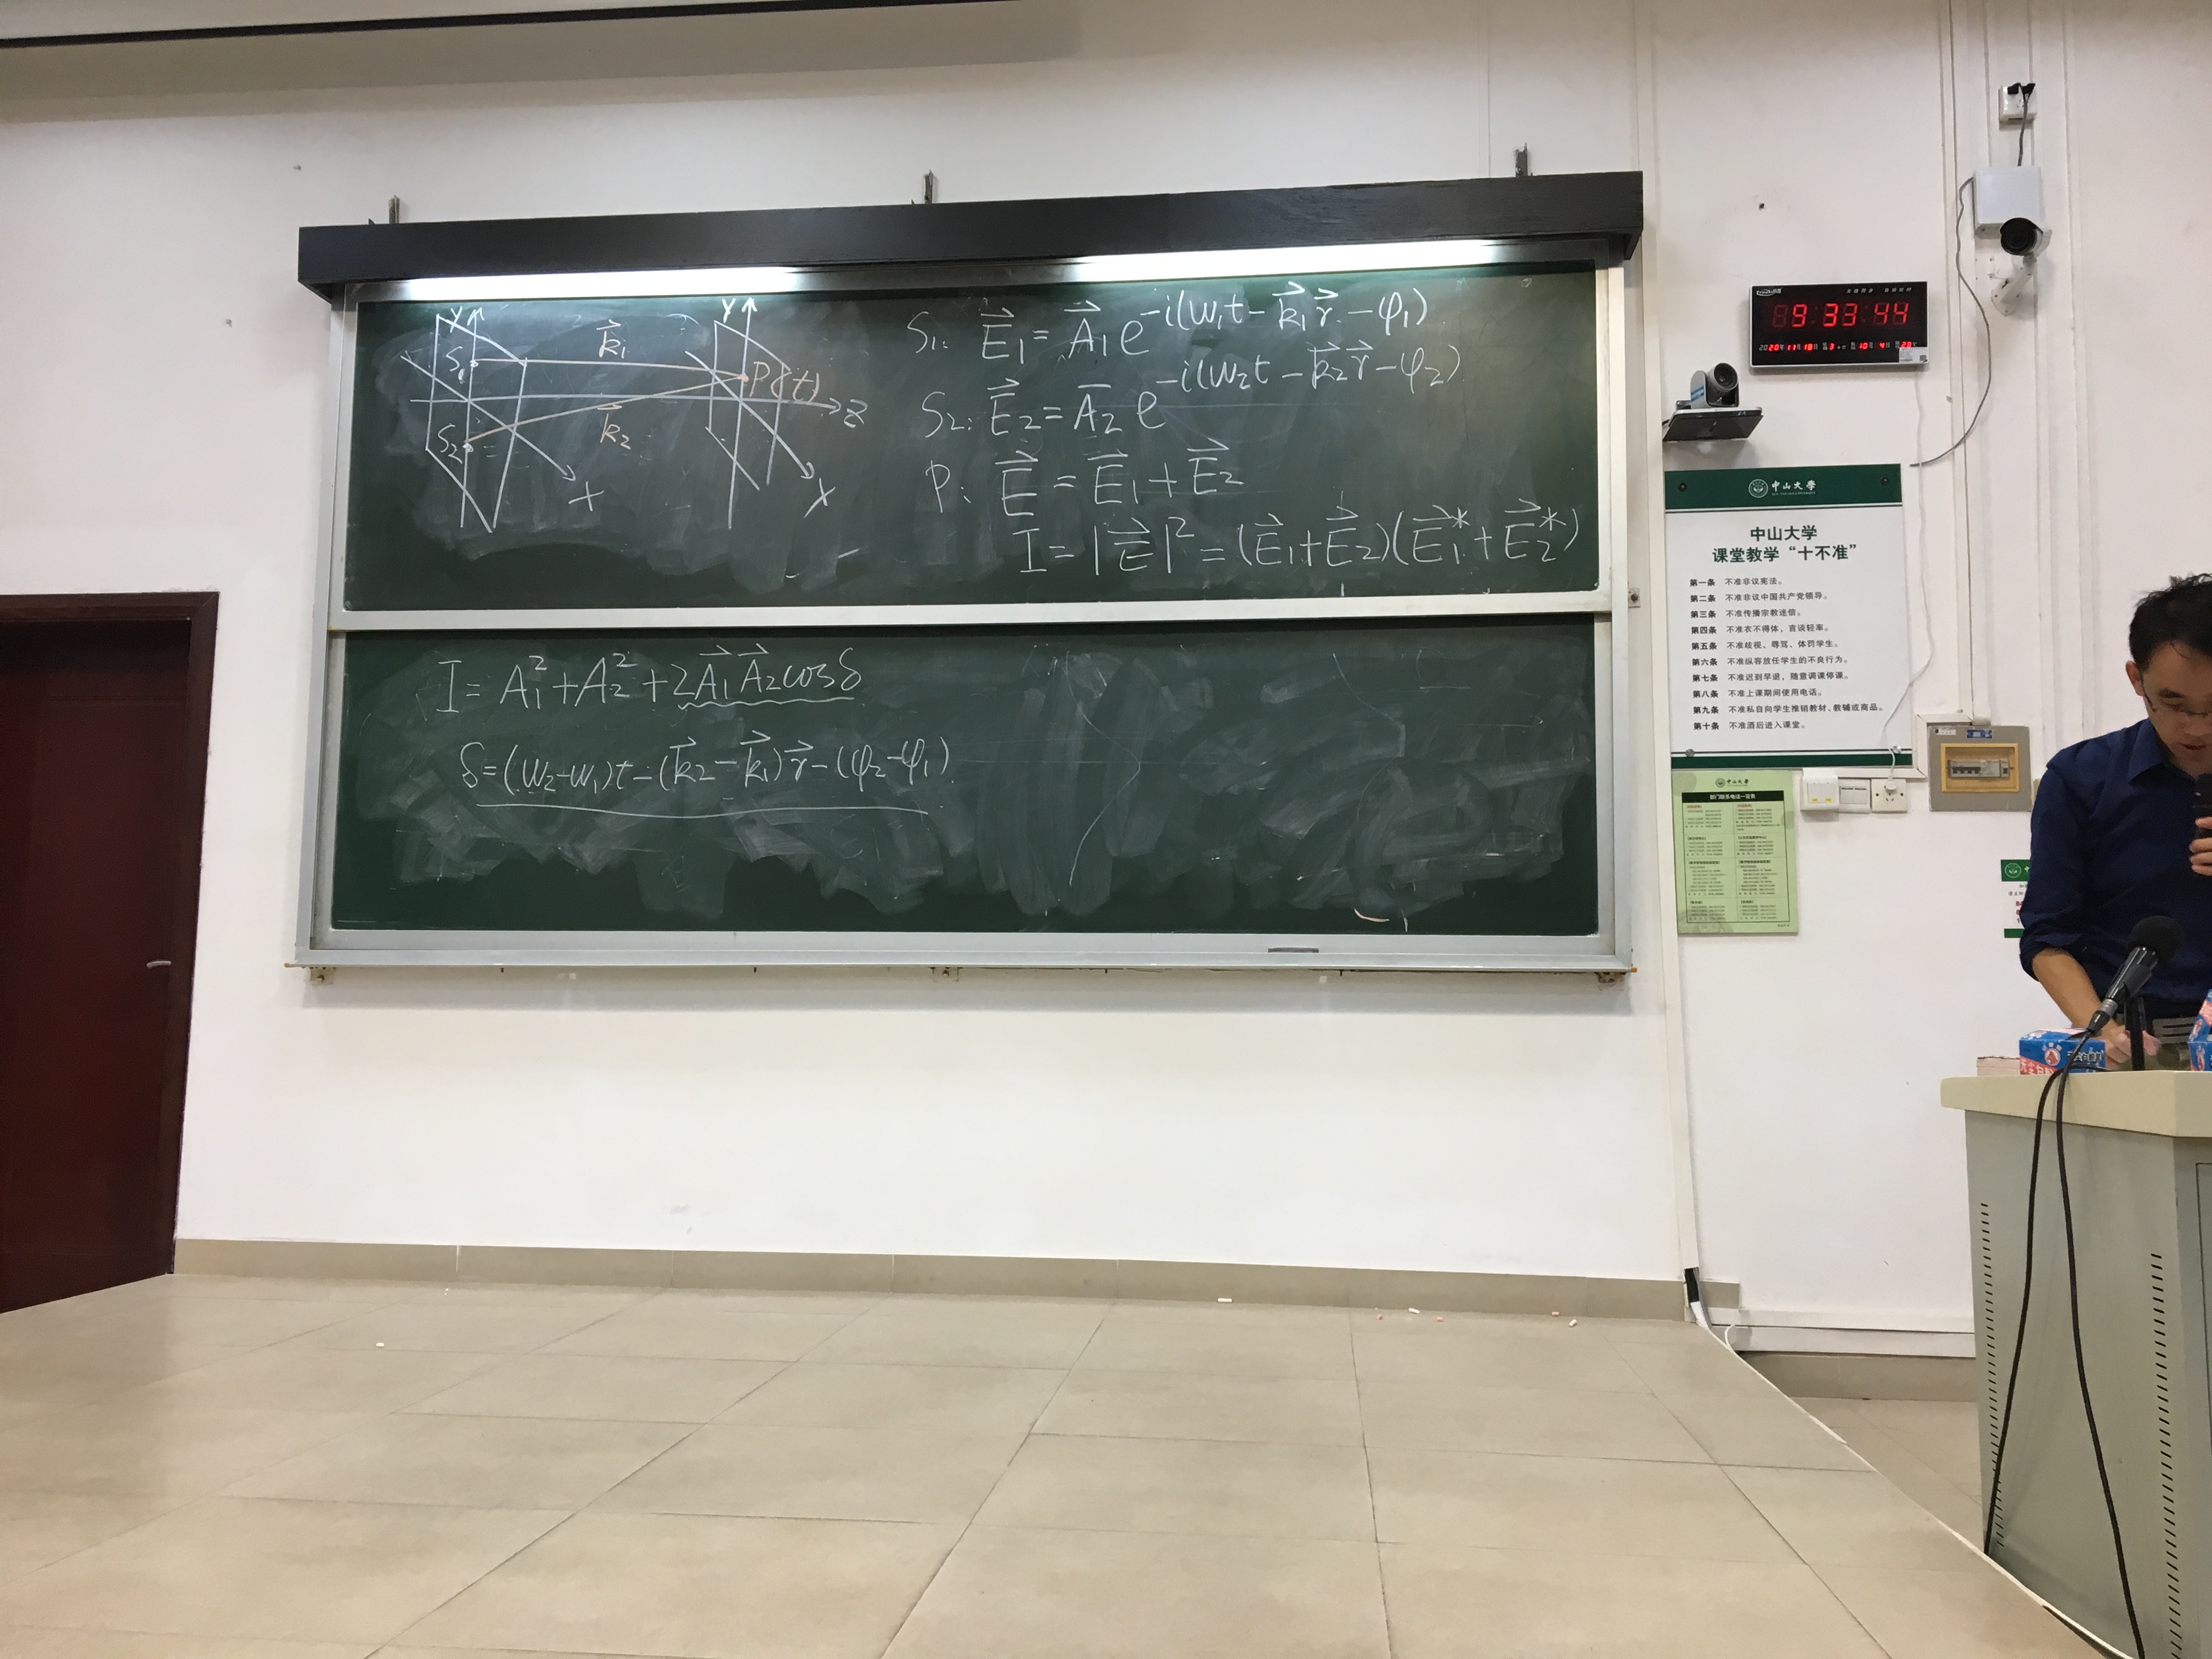 Y
S₁
k⃗₁
S₂
k⃗₂
X
Y
P(t)
Z
X
S₁: E⃗₁ = A⃗₁ e^{-i(ω₁t - k⃗₁r⃗ - φ₁)}
S₂: E⃗₂ = A̅₂ e^{-i(ω₂t - k⃗₂r⃗ - φ₂)}
P: E⃗ = E⃗₁ + E⃗₂
I = |E⃗|² = (E⃗₁+E⃗₂)(E⃗₁*+E⃗₂*)
I = A₁² + A₂² + 2A⃗₁A⃗₂cosδ
δ = (ω₂-ω₁)t - (k⃗₂-k⃗₁)r⃗ - (φ₂-φ₁)
9:33:44
2020年11月18日
中山大學
中山大学
课堂教学“十不准”
第一条 不准非议宪法。
第二条 不准非议中国共产党领导。
第三条 不准传播宗教迷信。
第四条 不准衣不得体，言谈轻率。
第五条 不准歧视、辱骂、体罚学生。
第六条 不准纵容放任学生的不良行为。
第七条 不准迟到早退，随意调课停课。
第八条 不准上课期间使用电话。
第九条 不准私自向学生推销教材、教辅或商品。
第十条 不准酒后进入课堂。
中山大學
部门联系电话一览表